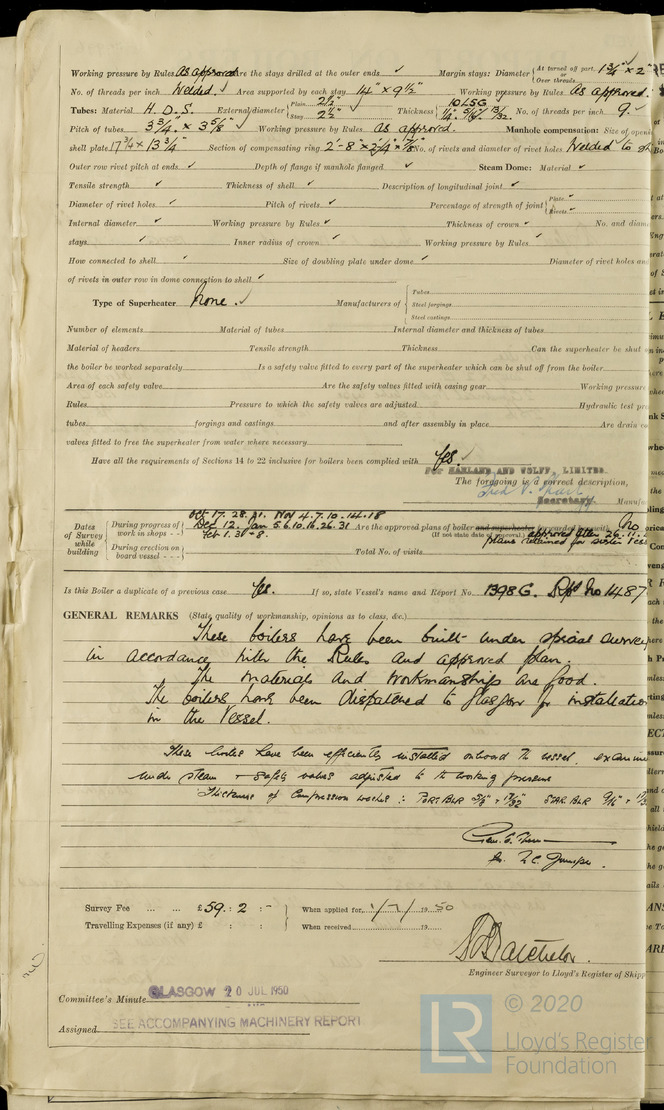 Working pressure by Rules As approved Are the stays drilled at the outer ends ✓ Margin stays: Diameter { At turned off part, 1 3/4" × 2" or Over threads
No. of threads per inch Welded. ✓ Area supported by each stay 14" × 9 1/2" Working pressure by Rules As approved.
Tubes: Material H.D.S. External diameter { Plain 2 1/2" Stay 2 1/2" Thickness { 10 LSG 1/4" 5/16" 13/32" No. of threads per inch 9
Pitch of tubes 3 3/4" × 3 5/8" ✓ Working pressure by Rules As approved. Manhole compensation: Size of
shell plate 17 3/4 × 13 3/4" Section of compensating ring No. of rivets and diameter of rivet holes Welded to
Outer row rivet pitch at ends ✓ Depth of flange if manhole flanged ✓ Steam Dome: Material ✓
Tensile strength ✓ Thickness of shell ✓ Description of longitudinal joint ✓
Diameter of rivet holes ✓ Pitch of rivets ✓ Percentage of strength of joint { Plate ✓ Rivets ✓
Internal diameter ✓ Working pressure by Rules ✓ Thickness of crown ✓ No. and
stays ✓ Inner radius of crown ✓ Working pressure by Rules ✓
How connected to shell ✓ Size of doubling plate under dome ✓ Diameter of rivet holes and
of rivets in outer row in dome connection to shell ✓
Type of Superheater None. ✓ Manufacturers of { Tubes
Steel forgings
Steel castings
Number of elements Material of tubes Internal diameter and thickness of tubes
Material of headers Tensile strength Thickness Can the superheater be shut
the boiler be worked separately Is a safety valve fitted to every part of the superheater which can be shut off from the boiler
Area of each safety valve Are the safety valves fitted with easing gear Working pressure
Rules Pressure to which the safety valves are adjusted Hydraulic test
tubes forgings and castings and after assembly in place Are drain
valves fitted to free the superheater from water where necessary
Have all the requirements of Sections 14 to 22 inclusive for boilers been complied with Yes. ✓
FOR HARLAND AND WOLFF, LIMITED.
The foregoing is a correct description,
Secretary.
Dates of Survey while building { During progress of work in shops - - } Oct 17. 28. 31. Nov 4. 7. 10. 14. 18 Dec 12. Jan 5 6. 10. 16. 26. 31 Feb 1. 3. 8. Are the approved plans of boiler and superheater forwarded herewith No
(If not state date of approval.) approved plans retained for sister
During erection on board vessel - - - Total No. of visits
Is this Boiler a duplicate of a previous case Yes. If so, state Vessel's name and Report No. 1398 G. Rpt No 1487
GENERAL REMARKS (State quality of workmanship, opinions as to class, &c.)
These boilers have been built under special survey
in accordance with the Rules and approved plan.
The materials and workmanship are good.
The boilers have been dispatched to Glasgow for installation
in the vessel.
These boilers have been efficiently installed onboard the vessel, examined
under steam & safety valves adjusted to the working pressure
Thickness of Compression washers : PORT. BLR STAR. BLR
Survey Fee ... ... £ 59 : 2 : - When applied for, 1/7/ 1950
Travelling Expenses (if any) £ : : When received 19
Engineer Surveyor to Lloyd's Register of
Committee's Minute GLASGOW 20 JUL 1950
Assigned SEE ACCOMPANYING MACHINERY REPORT
LR © 2020
Lloyd's Register
Foundation